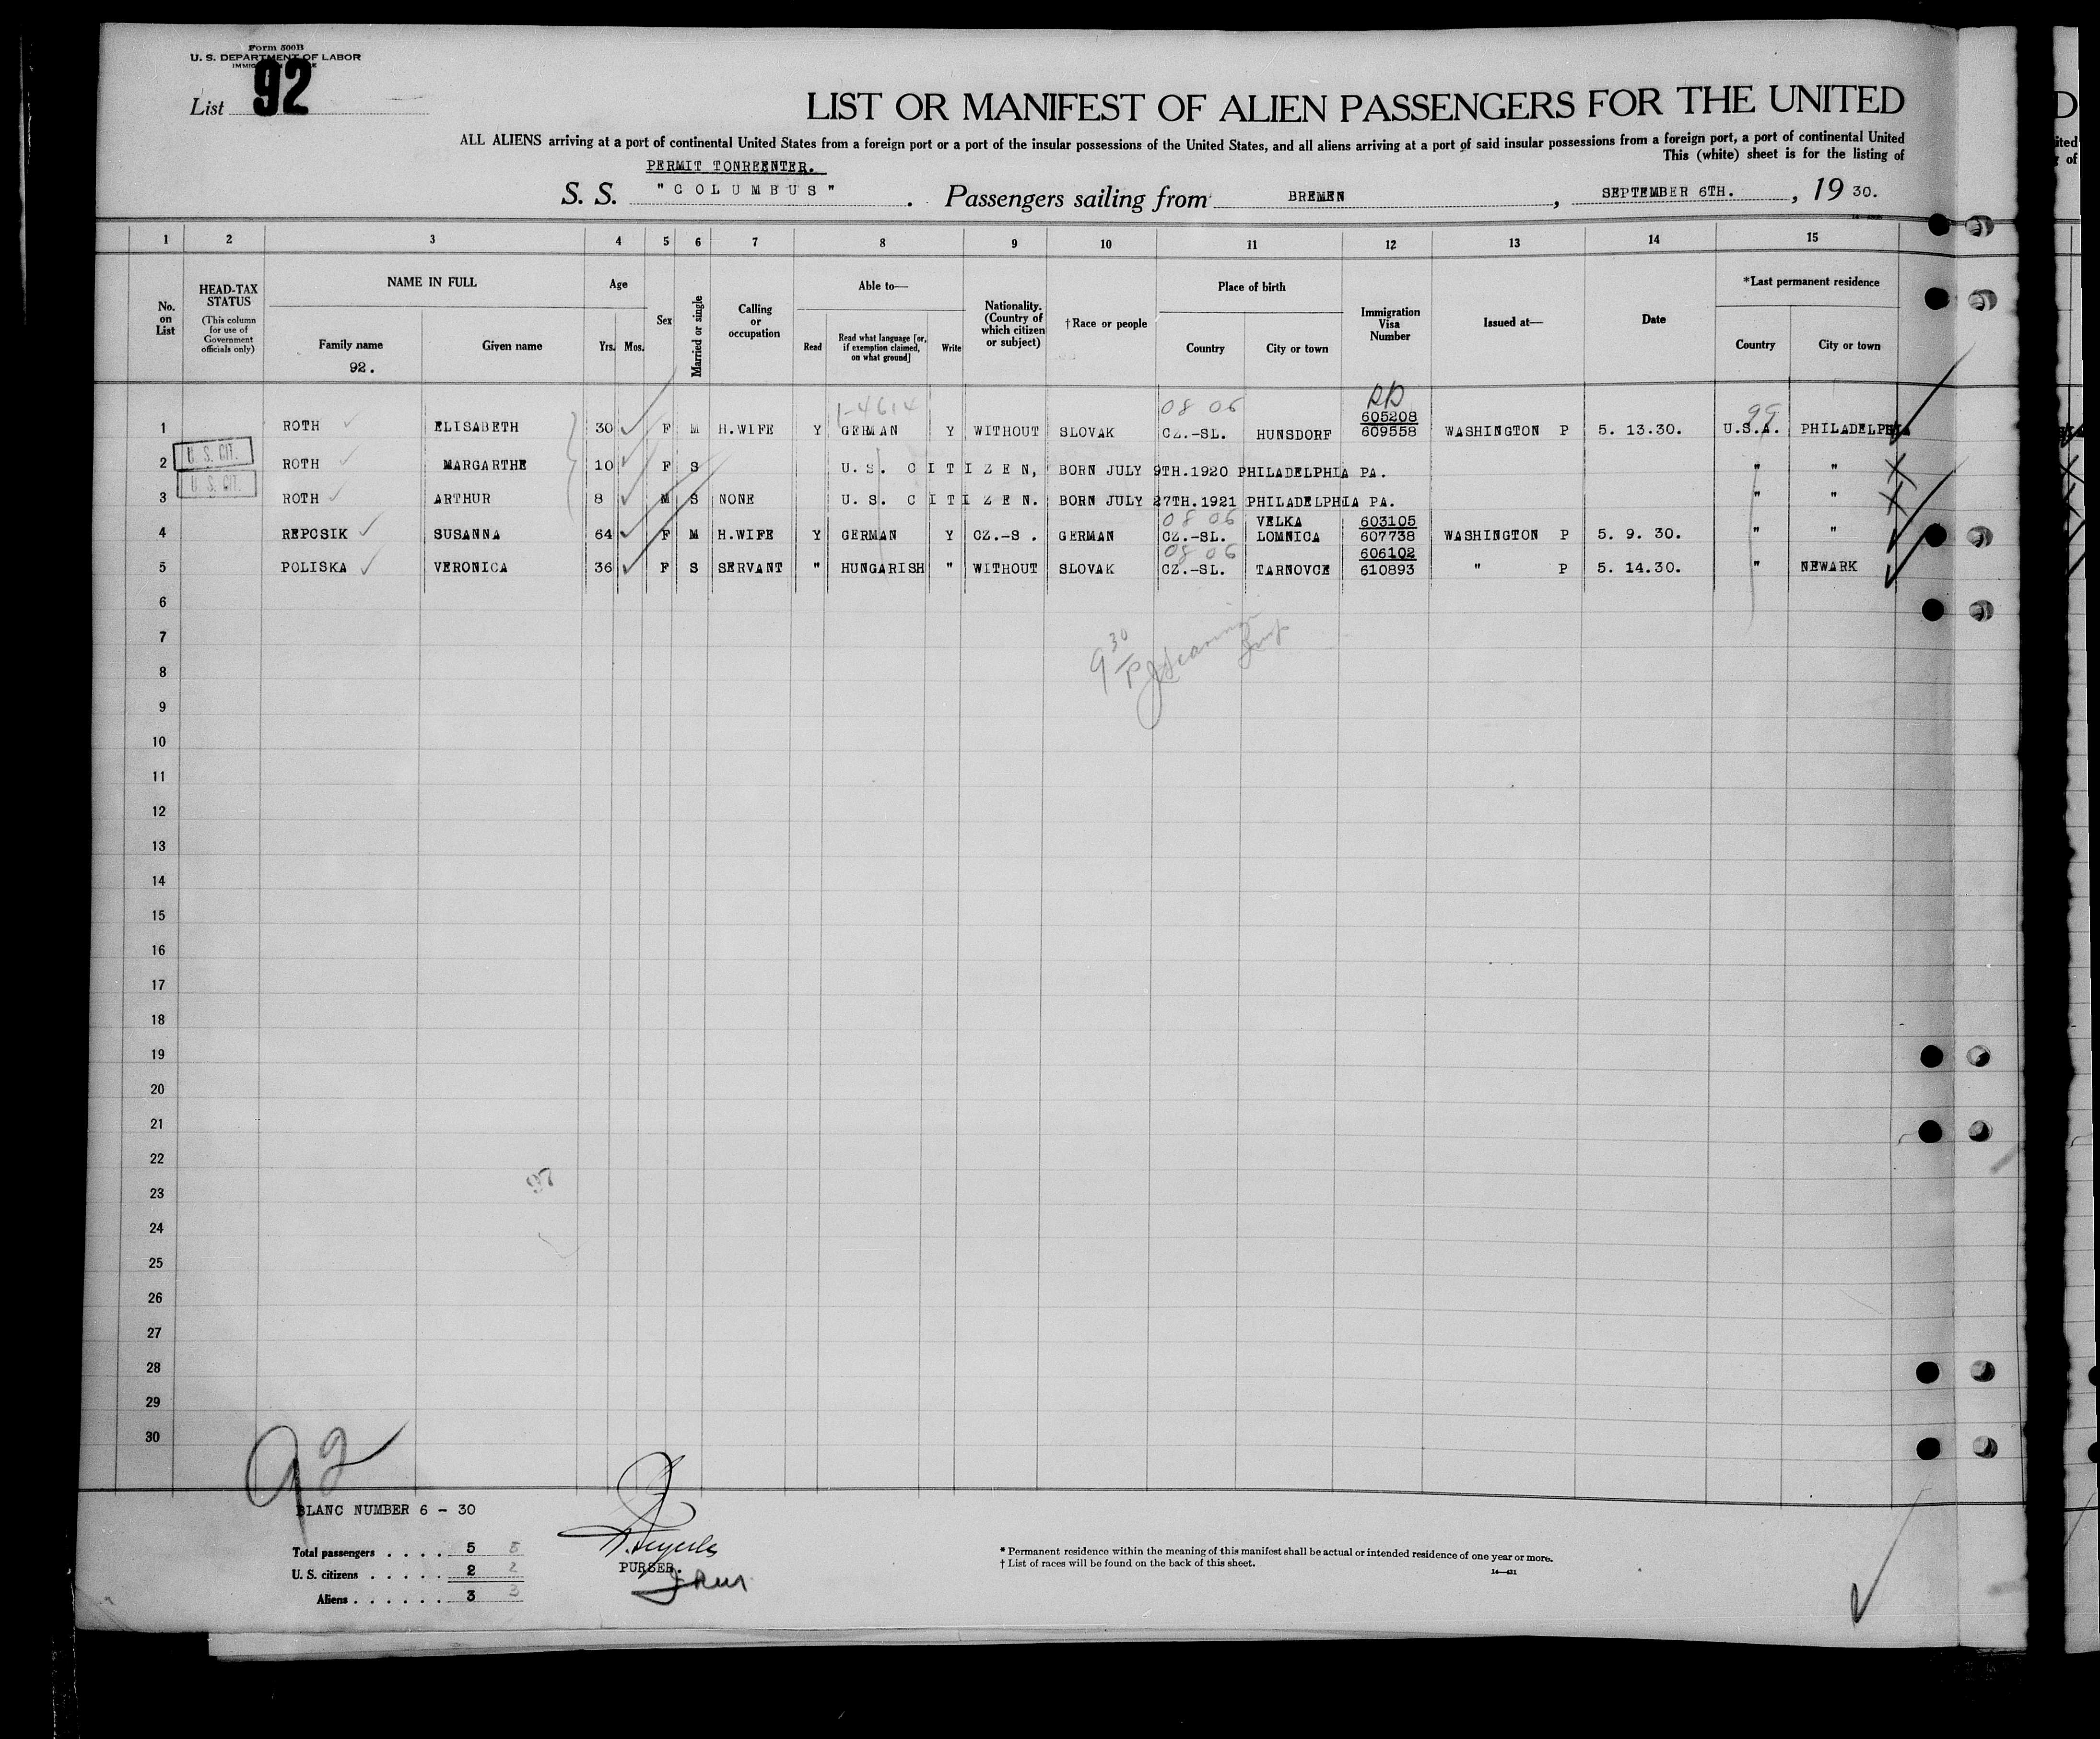 Form 500B
U. S. DEPARTMENT OF LABOR
List 92
LIST OR MANIFEST OF ALIEN PASSENGERS FOR THE UNITED
ALL ALIENS arriving at a port of continental United States from a foreign port or a port of the insular possessions of the United States, and all aliens arriving at a port of said insular possessions from a foreign port, a port of continental United
This (white) sheet is for the listing of
PERMIT TONREENTER.
S. S. "COLUMBUS". Passengers sailing from BREMEN, SEPTEMBER 6TH., 19 30.
1 2 3 4 5 6 7 8 9 10 11 12 13 14 15
No. on List
HEAD-TAX STATUS (This column for use of Government officials only)
NAME IN FULL
Family name
92.
Given name
Age
Yrs. Mos.
Sex
Married or single
Calling or occupation
Able to—
Read
Read what language [or, if exemption claimed, on what ground]
Write
Nationality. (Country of which citizen or subject)
†Race or people
Place of birth
Country
City or town
Immigration Visa Number
Issued at—
Date
*Last permanent residence
Country
City or town
1-4614 08 06 99
1 ROTH ELISABETH 30 F M H.WIFE Y GERMAN Y WITHOUT SLOVAK CZ.-SL. HUNSDORF 605208 609558 WASHINGTON P 5. 13.30. U.S.A. PHILADELPHIA
2 U. S. CIT. ROTH MARGARTHE 10 F S U. S. CITIZEN, BORN JULY 9TH.1920 PHILADELPHIA PA. " "
3 U. S. CIT. ROTH ARTHUR 8 M S NONE U. S. CITIZEN. BORN JULY 27TH.1921 PHILADELPHIA PA. " "
08 06
4 REPCSIK SUSANNA 64 F M H.WIFE Y GERMAN Y CZ.-S . GERMAN CZ.-SL. VELKA LOMNICA 603105 607738 WASHINGTON P 5. 9. 30. " "
08 06
5 POLISKA VERONICA 36 F S SERVANT " HUNGARISH " WITHOUT SLOVAK CZ.-SL. TARNOVCE 606102 610893 " P 5. 14.30. " NEWARK
6
7
8
9
10
11
12
13
14
15
16
17
18
19
20
21
22
23
24
25
26
27
28
29
30
92
BLANC NUMBER 6 - 30
Total passengers . . . . 5 5
U. S. citizens . . . . . 2 2
Aliens . . . . . . 3 3
PURSER.
* Permanent residence within the meaning of this manifest shall be actual or intended residence of one year or more.
† List of races will be found on the back of this sheet.
14—421